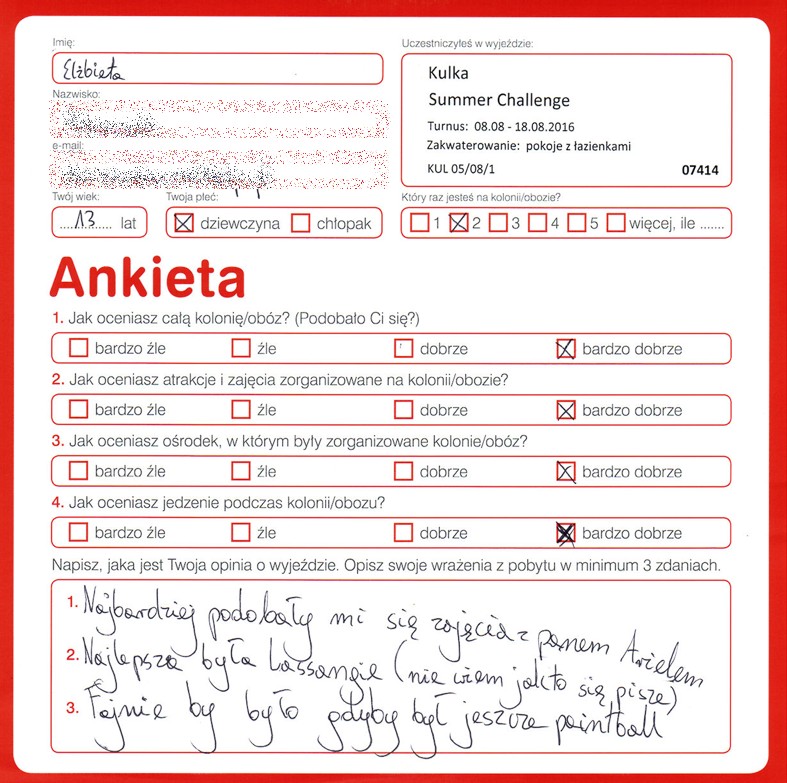 Imię:
Elżbieta
Nazwisko:
e-mail:
Twój wiek:
....13.... lat
Twoja płeć:
dziewczyna chłopak
Uczestniczyłeś w wyjeździe:
Kulka
Summer Challenge
Turnus: 08.08 - 18.08.2016
Zakwaterowanie: pokoje z łazienkami
KUL 05/08/1 07414
Który raz jesteś na kolonii/obozie?
1 2 3 4 5 więcej, ile .......
Ankieta
1. Jak oceniasz całą kolonię/obóz? (Podobało Ci się?)
bardzo źle źle dobrze bardzo dobrze
2. Jak oceniasz atrakcje i zajęcia zorganizowane na kolonii/obozie?
bardzo źle źle dobrze bardzo dobrze
3. Jak oceniasz ośrodek, w którym były zorganizowane kolonie/obóz?
bardzo źle źle dobrze bardzo dobrze
4. Jak oceniasz jedzenie podczas kolonii/obozu?
bardzo źle źle dobrze bardzo dobrze
Napisz, jaka jest Twoja opinia o wyjeździe. Opisz swoje wrażenia z pobytu w minimum 3 zdaniach.
1. Najbardziej podobały mi się zajęcia z panem Arielem
2. Najlepsza była Lassangie (nie wiem jak to się pisze)
3. Fajnie by było gdyby był jeszcze paintball